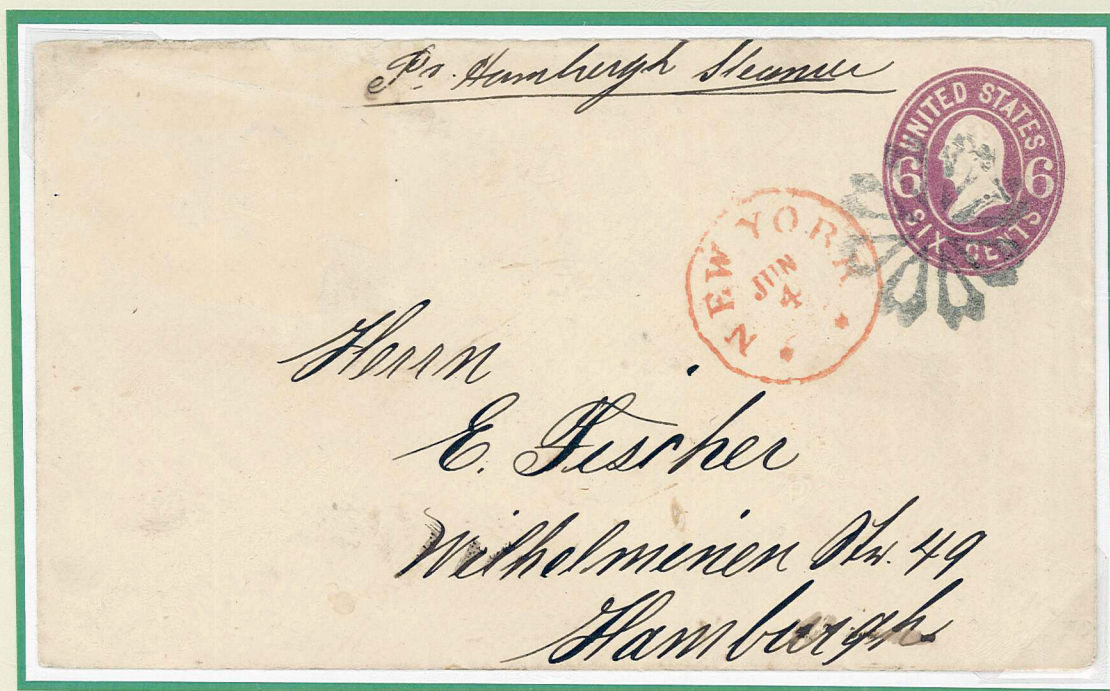 Pr. Hambergh Steamer
UNITED STATES
6 6
SIX CENTS
NEW YORK
JUN
4
Herrn
E. Fischer
Wilhelminen Str. 49
Hamburgh